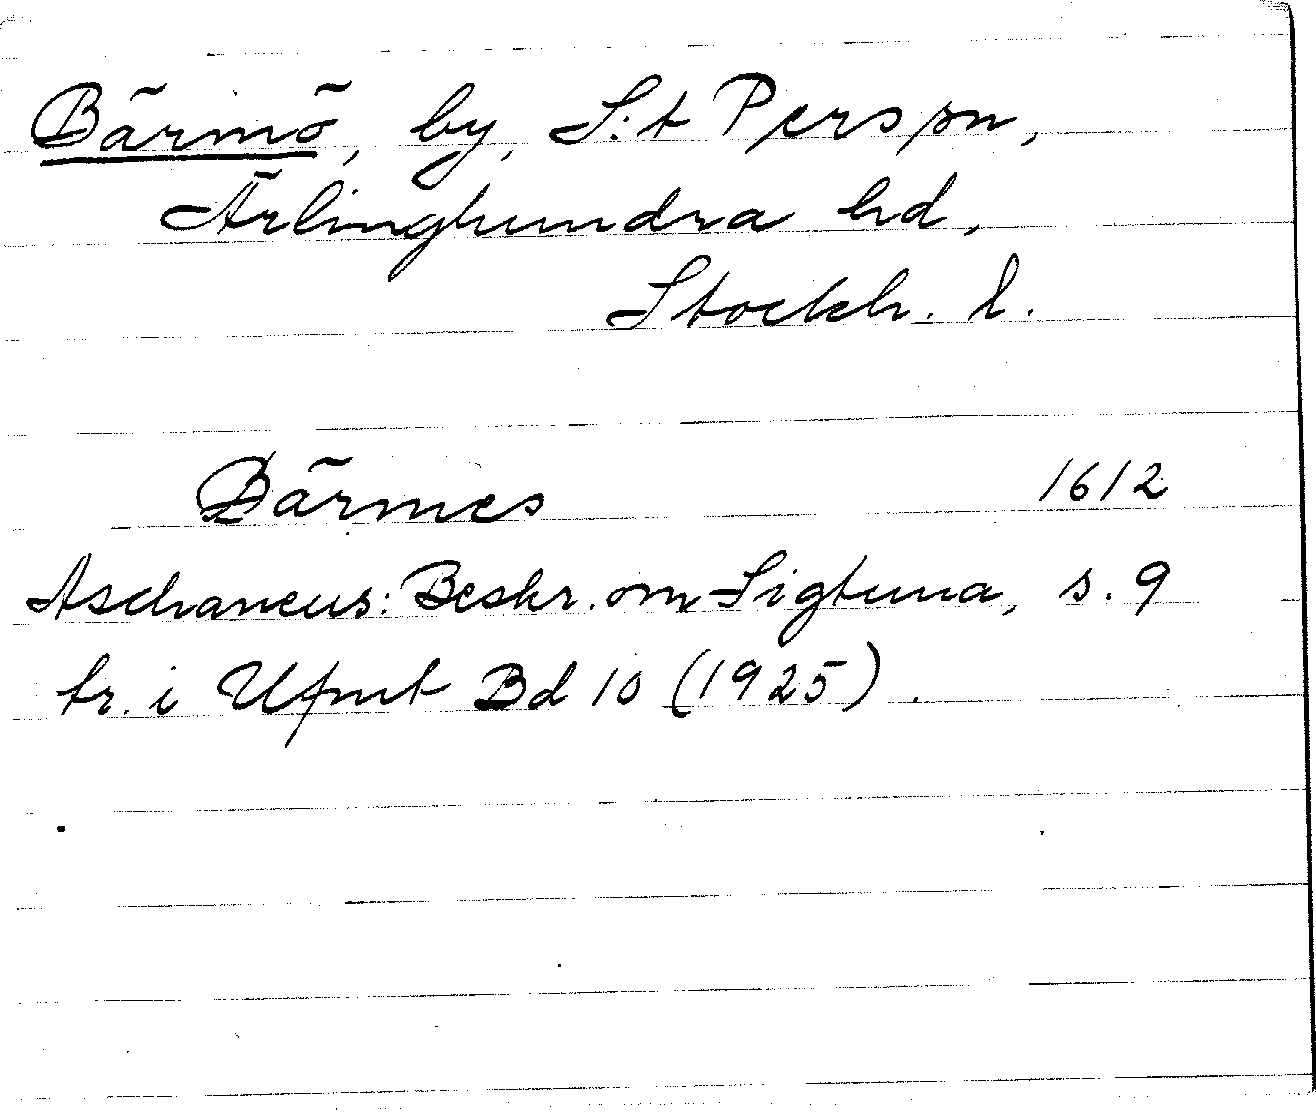 Bärmö, by, S:t Pers sn,
Ärlinghundra hd,
Stockh. l.
Bärmes 1612
Aschaneus: Beskr. om Sigtuna, s. 9
tr. i Ufmt Bd 10 (1925).